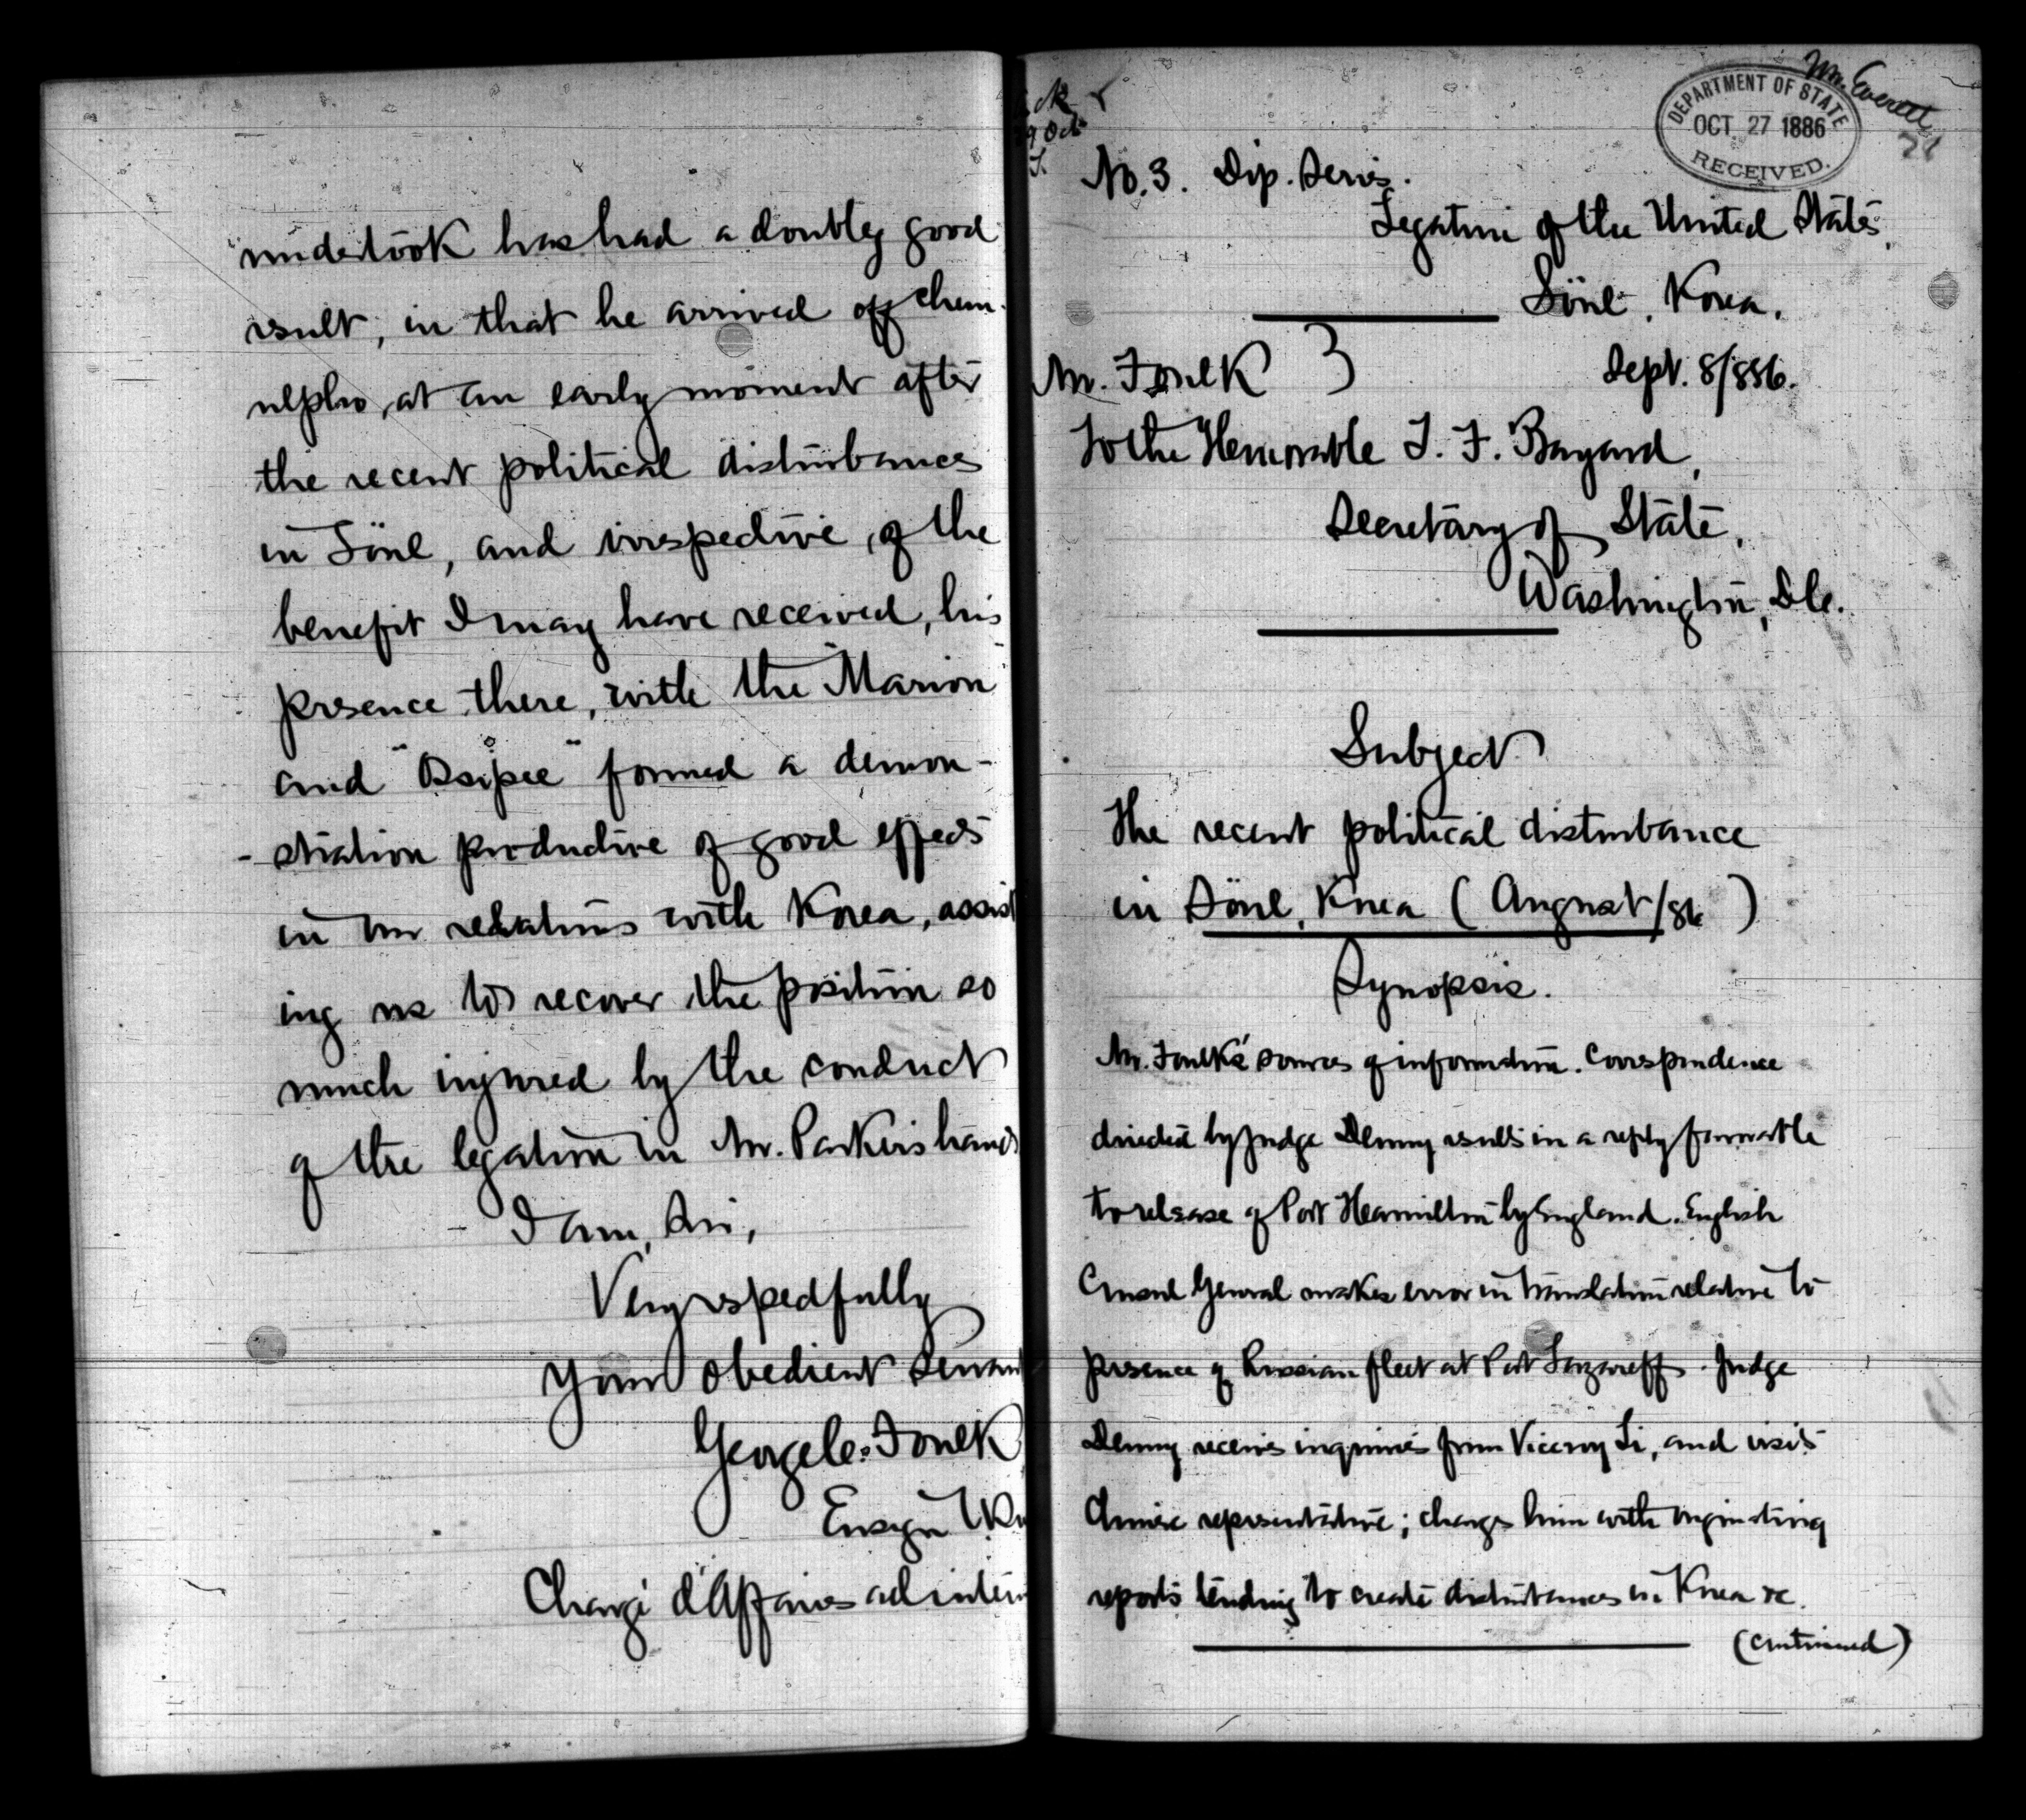 undertook has had a doubly good
result, in that he arrived off Chem-
ulpho, at an early moment after
the recent political disturbances
in Söul, and irrespective, of the
benefit I may have received, his
presence there, with the "Marion"
and "Ossipee" formed a demon-
-stration productive of good effects
in our relations with Korea, assist
ing us to recover the position so
much injured by the conduct
of the legation in Mr. Parker's hands
I am, Sir,
Very respectfully
Your obedient servant
George C. Foulk
Ensign
Chargé d'Affaires ad interim
DEPARTMENT OF STATE
OCT. 27 1886
RECEIVED.
Wm. Everett
ack
29 Oct
No. 3. Dip. Series.
Legation of the United States,
Söul, Korea,
Mr. Foulk 3 Sept. 8/886.
To the Honorable T. F. Bayard,
Secretary of State,
Washington, D.C.
Subject
The recent political disturbance
in Söul, Korea (August/86)
Synopsis.
Mr. Foulk's sources of information. Correspondence
directed by Judge Denny results in a reply favorable
to release of Port Hamilton by England. English
Consul General makes error in translation relative to
presence of Russian fleet at Port Lazareff. Judge
Denny receives inquiries from Viceroy Li, and visits
Chinese representative; charges him with originating
reports tending to create disturbances in Korea &c.
(continued)